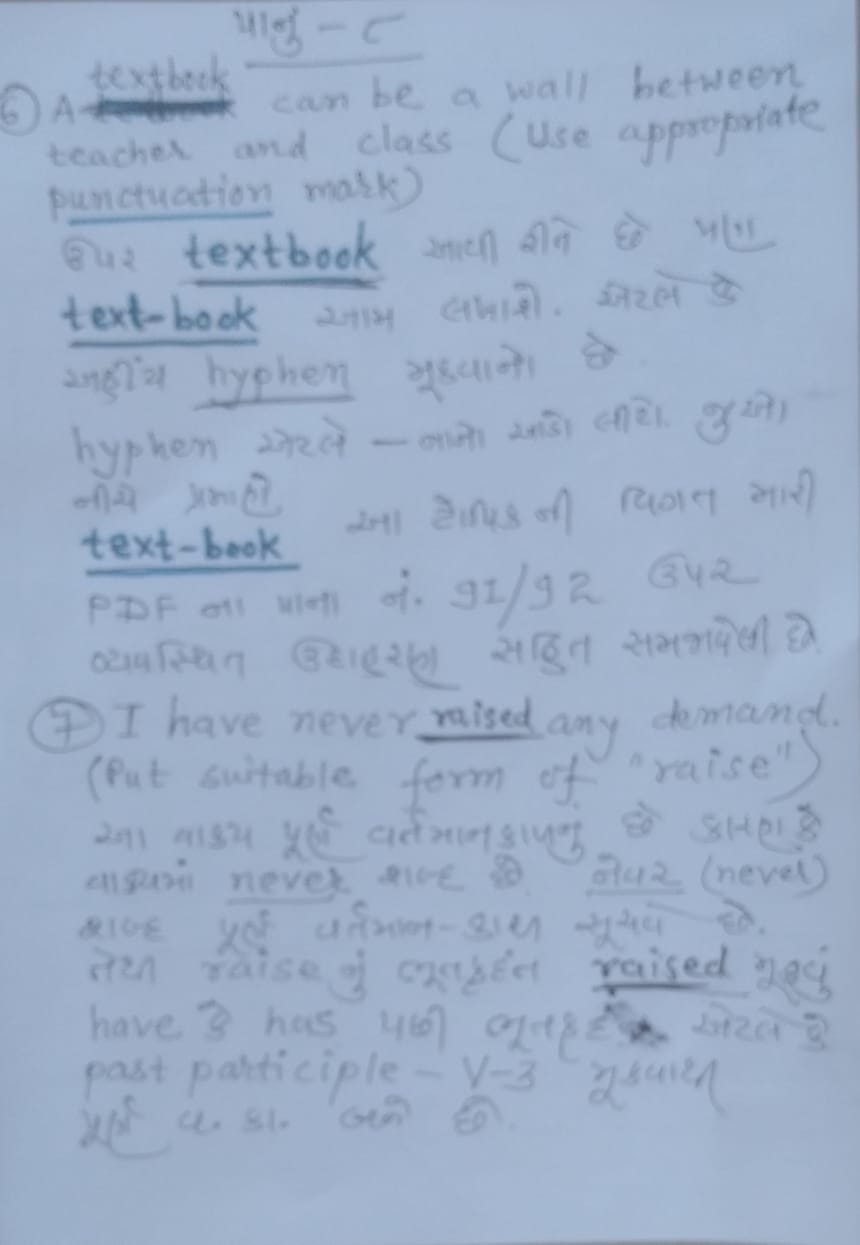 પાનું - ૮
textbook
⑥ A can be a wall between
teacher and class (Use appropriate
punctuation mark)
ઉપર textbook આવી રીતે છે પણ
text-book આમ લખાશે. એટલે કે
અહીંય hyphen મૂકવાનો છે.
hyphen એટલે – નાનો આડો લીટો. જુઓ
નીચે પ્રમાણે
text-book આ ટોપિક ની વિગત મારી
PDF ના પાના નં. 91/92 ઉપર
વ્યવસ્થિત ઉદાહરણ સહિત સમજાવેલી છે
⑦ I have never raised any demand.
(Put suitable form of "raise")
આ વાક્ય પૂર્ણ વર્તમાનકાળનું છે કારણ કે
વાક્યમાં never શબ્દ છે નેવર (never)
શબ્દ પૂર્ણ વર્તમાન-કાળ સૂચવે છે.
તેથી raise નું ભૂતકૃદંત raised મૂક્યું
have કે has પછી ભૂતકૃદંત એટલે કે
past participle - V-3 મૂકવાથી
પૂર્ણ વ. કા. બને છે.